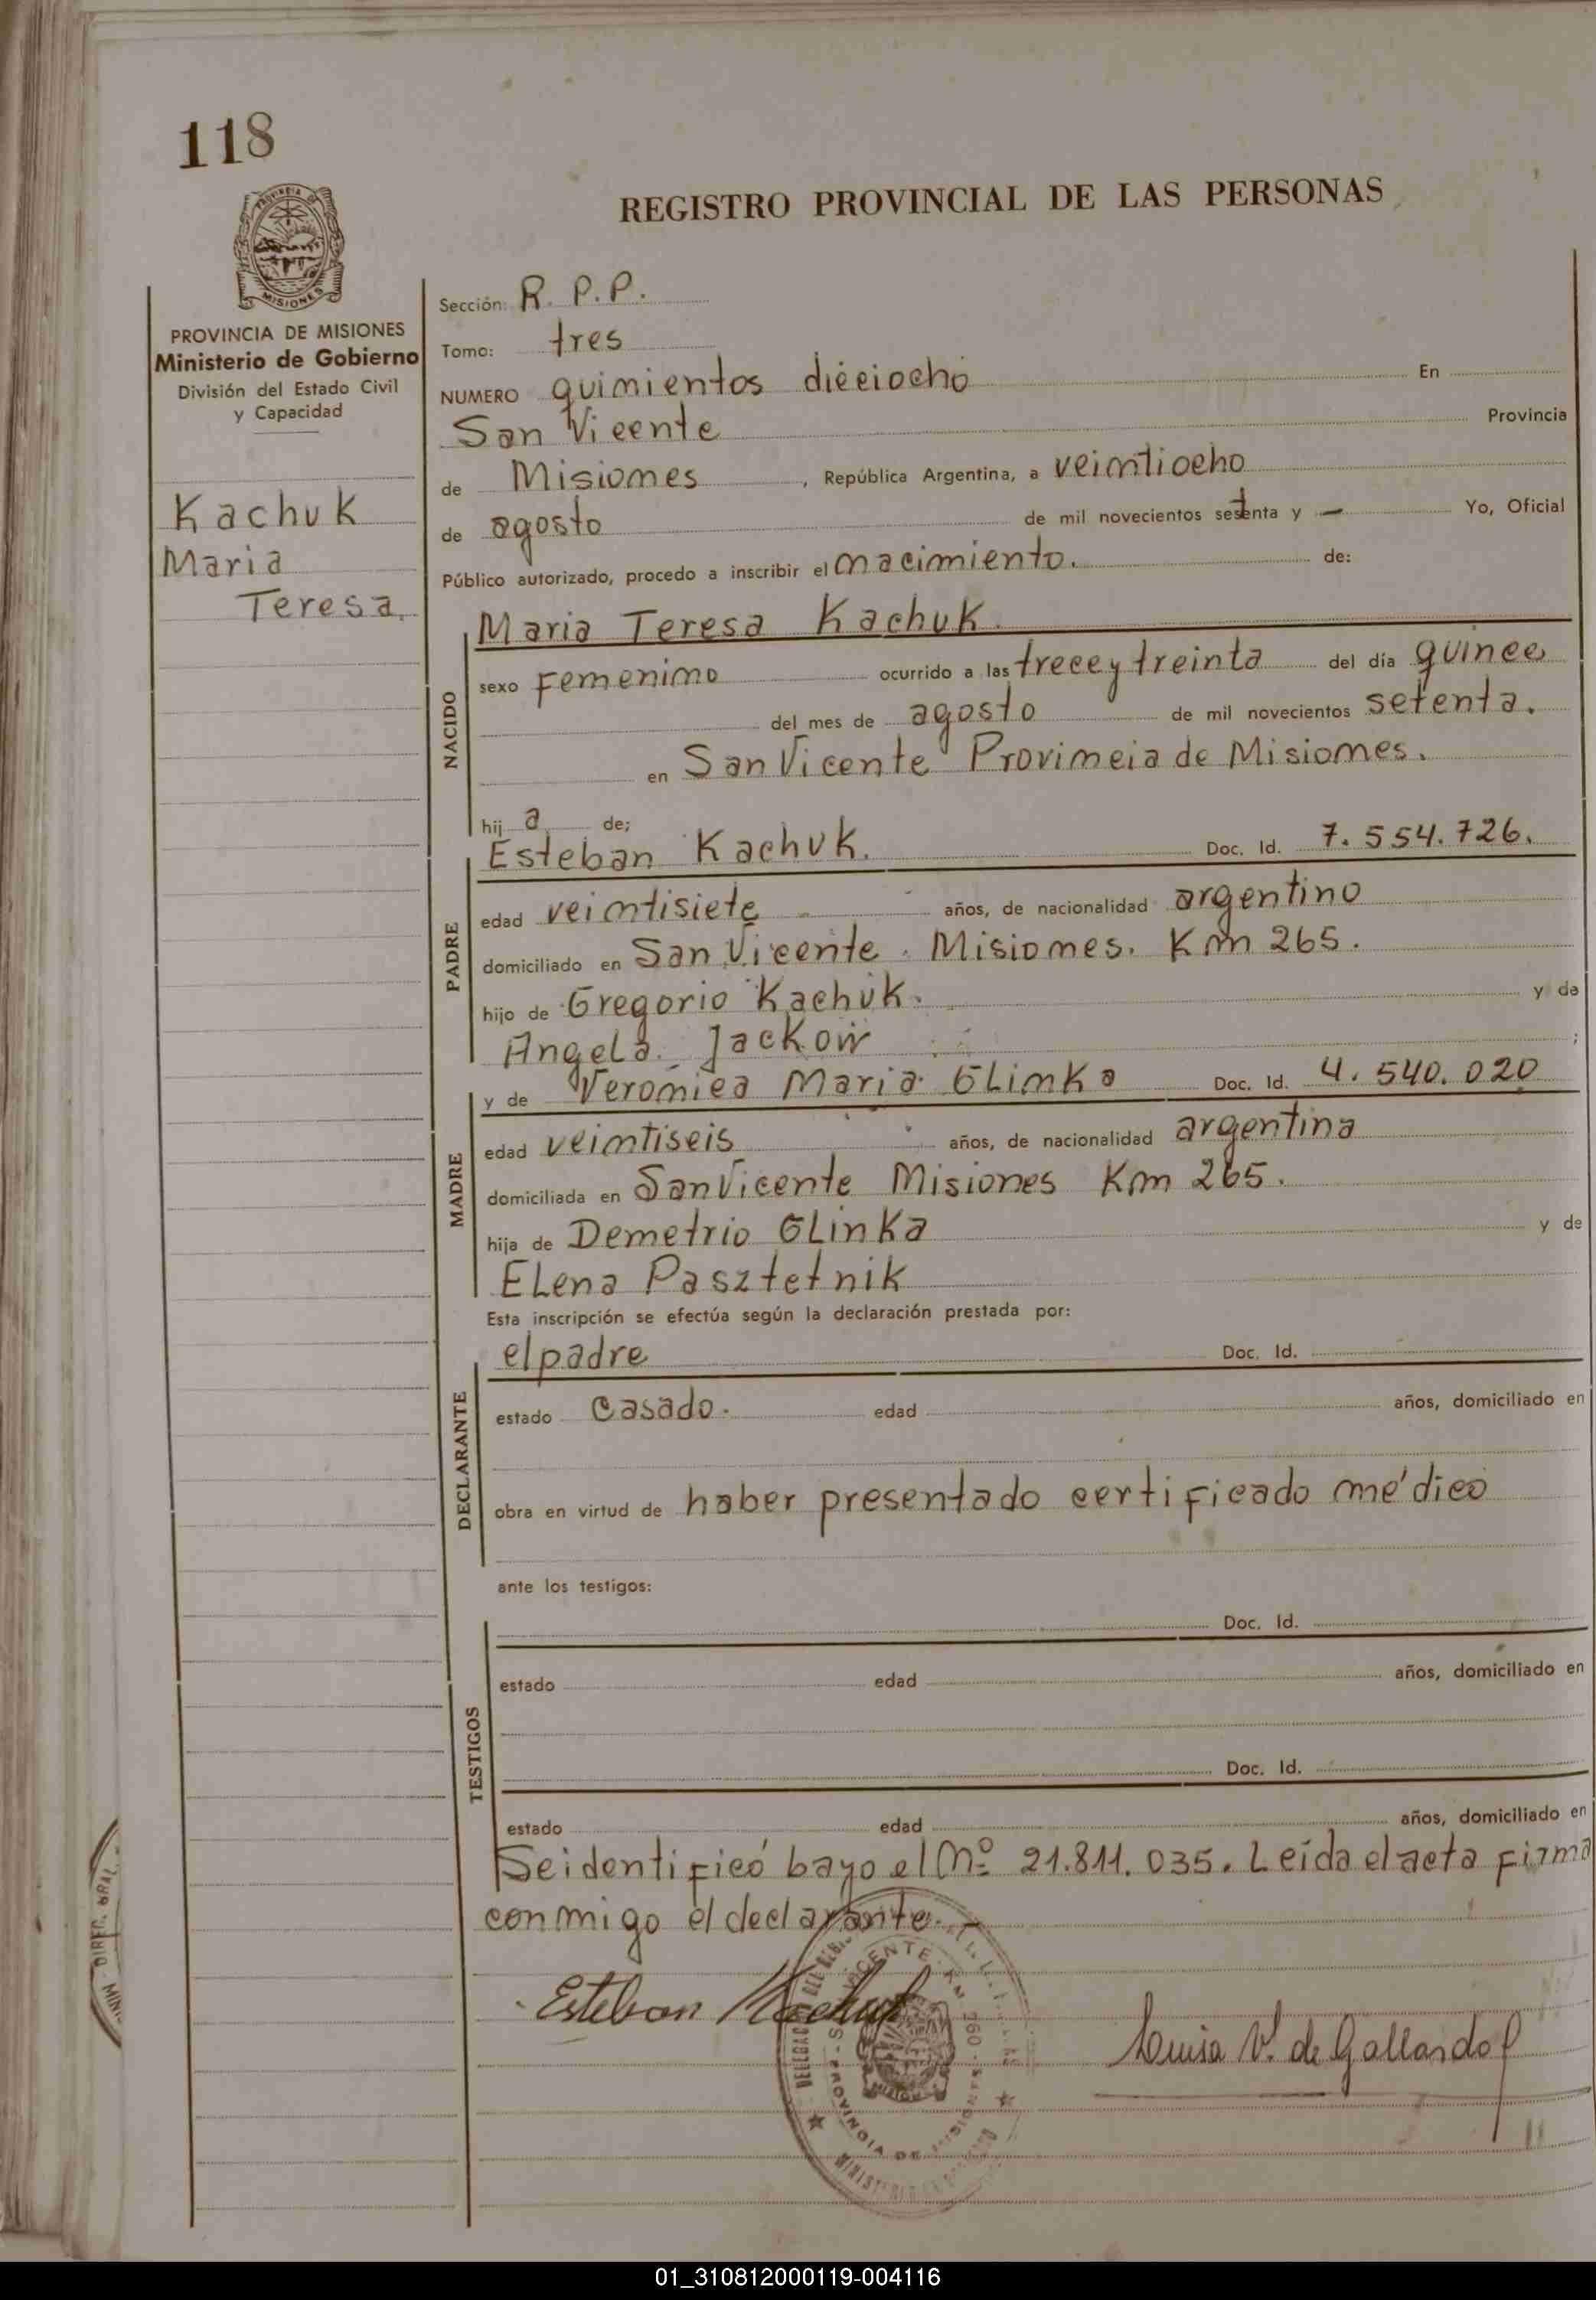 118
REGISTRO PROVINCIAL DE LAS PERSONAS
PROVINCIA DE MISIONES
Ministerio de Gobierno
División del Estado Civil
y Capacidad
Kachuk
Maria
Teresa.
Sección: R. P. P.
Tomo: tres
NUMERO quimientos dieciocho En
San Vicente Provincia
de Misiones, República Argentina, a veintiocho
de agosto de mil novecientos setenta y — Yo, Oficial
Público autorizado, procedo a inscribir el nacimiento. de:
NACIDO
Maria Teresa Kachuk.
sexo Femenino ocurrido a las trece y treinta del día quince
del mes de agosto de mil novecientos setenta.
en San Vicente Provincia de Misiones.
hij a de;
PADRE
Esteban Kachuk. Doc. Id. 7.554.726.
edad veintisiete años, de nacionalidad argentino
domiciliado en San Vicente. Misiones. Km 265.
hijo de Gregorio Kachuk. y de
Angela Jackow ;
MADRE
y de Veronica Maria GLinka Doc. Id. 4.540.020
edad veintiseis años, de nacionalidad argentina
domiciliada en San Vicente Misiones Km 265.
hija de Demetrio GLinka y de
ELena Pasztetnik
Esta inscripción se efectúa según la declaración prestada por:
DECLARANTE
el padre Doc. Id.
estado casado. edad años, domiciliado en
obra en virtud de haber presentado certificado médico
ante los testigos:
TESTIGOS
Doc. Id.
estado edad años, domiciliado en
Doc. Id.
estado edad años, domiciliado en
Se identificó bayo el Nº 21.811.035. Leída el acta firma
conmigo el declarante.-
Esteban Kachuk
Luisa V. de Gallardo
PROVINCIA DE MISIONES
01_310812000119-004116